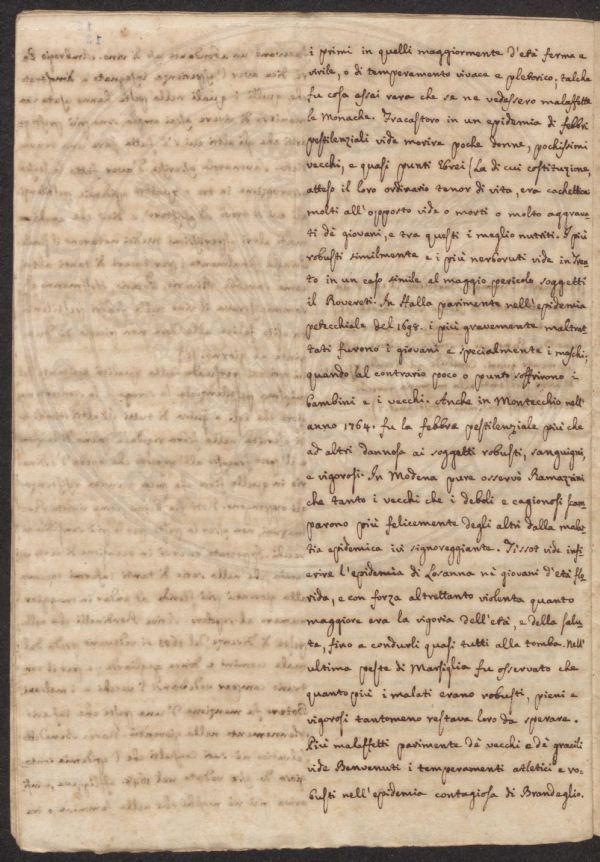 i primi in quelli maggiormente d'età ferma e
virile, o di temperamento vivace e pletorico; talche
fu cosa assai rara che se ne vedessero malaffette
le Monache. Fracastoro in un epidemia di febbri
pestilenziali vide morire poche donne, pochissimi
vecchi, e quasi punti Ebrei (la di cui costituzione,
atteso il loro ordinario tenor di vita, era cachettica
molti all'opposto vide o morti o molto aggrava-
ti dà giovani, e tra questi i meglio nutriti. I più
robusti similmente e i più nerboruti vide in Tren-
to in un caso simile al maggio pericolo soggetti
il Rovereti. In Halla parimente nell'epidemia
petecchiale del 1698. i più gravemente maltrat-
tati furono i giovani e specialmente i maschi;
quando al contrario poco o punto soffrirono i
bambini e i vecchi. Anche in Montecchio nell'
anno 1764. fu la febbre pestilenziale più che
ad altri dannosa ai soggetti robusti, sanguigni,
e vigorosi. In Modena pure osservò Ramazzini
che tanto i vecchi che i deboli e cagionosi scam-
parono più felicemente degli altri dalla malat-
tia epidemica ivi signoreggiante. Tissot vide infi-
erire l'epidemia di Losanna nè giovani d'età flo-
rida, e con forza altrettanto violenta quanto
maggiore era la vigoria dell'età, e della salu-
te, fino a condurli quasi tutti alla tomba. Nell'
ultima peste di Marsiglia fu osservato che
quanto più i malati erano robusti, pieni e
vigorosi tantomeno restava loro da sperare.
Più malaffetti parimente dà vecchi e dà gracili
vide Benvenuti i temperamenti atletici e ro-
busti nell'epidemia contagiosa di Brandeglio.